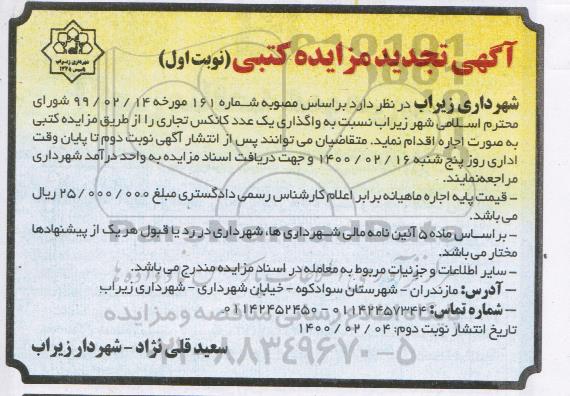 آگهی تجدید مزایده کتبی (نوبت اول)
شهرداری زیراب
تاسیس ۱۳۳۵
شهرداری زیراب در نظر دارد براساس مصوبه شماره ۱۶۱ مورخه ۱۴ / ۰۲ / ۹۹ شورای
محترم اسلامی شهر زیراب نسبت به واگذاری یک عدد کانکس تجاری را از طریق مزایده کتبی
به صورت اجاره اقدام نماید. متقاضیان می توانند پس از انتشار آگهی نوبت دوم تا پایان وقت
اداری روز پنج شنبه ۱۶ / ۰۲ / ۱۴۰۰ و جهت دریافت اسناد مزایده به واحد درآمد شهرداری
مراجعه نمایند.
– قیمت پایه اجاره ماهیانه برابر اعلام کارشناس رسمی دادگستری مبلغ ۲۵/۰۰۰/۰۰۰ ریال
می باشد.
– براساس ماده ۵ آئین نامه مالی شهرداری ها، شهرداری در رد یا قبول هر یک از پیشنهادها
مختار می باشد.
– سایر اطلاعات و جزئیات مربوط به معامله در اسناد مزایده مندرج می باشد.
– آدرس: مازندران – شهرستان سوادکوه – خیابان شهرداری – شهرداری زیراب
– شماره تماس: ۰۱۱۴۲۴۵۷۳۴۴ – ۰۱۱۴۲۴۵۲۴۵۰
تاریخ انتشار نوبت دوم: ۰۴ / ۰۲ / ۱۴۰۰
سعید قلی نژاد – شهردار زیراب
ParsNamadData
۰۲۱-۸۸۳۴۹۶۷۰-۵